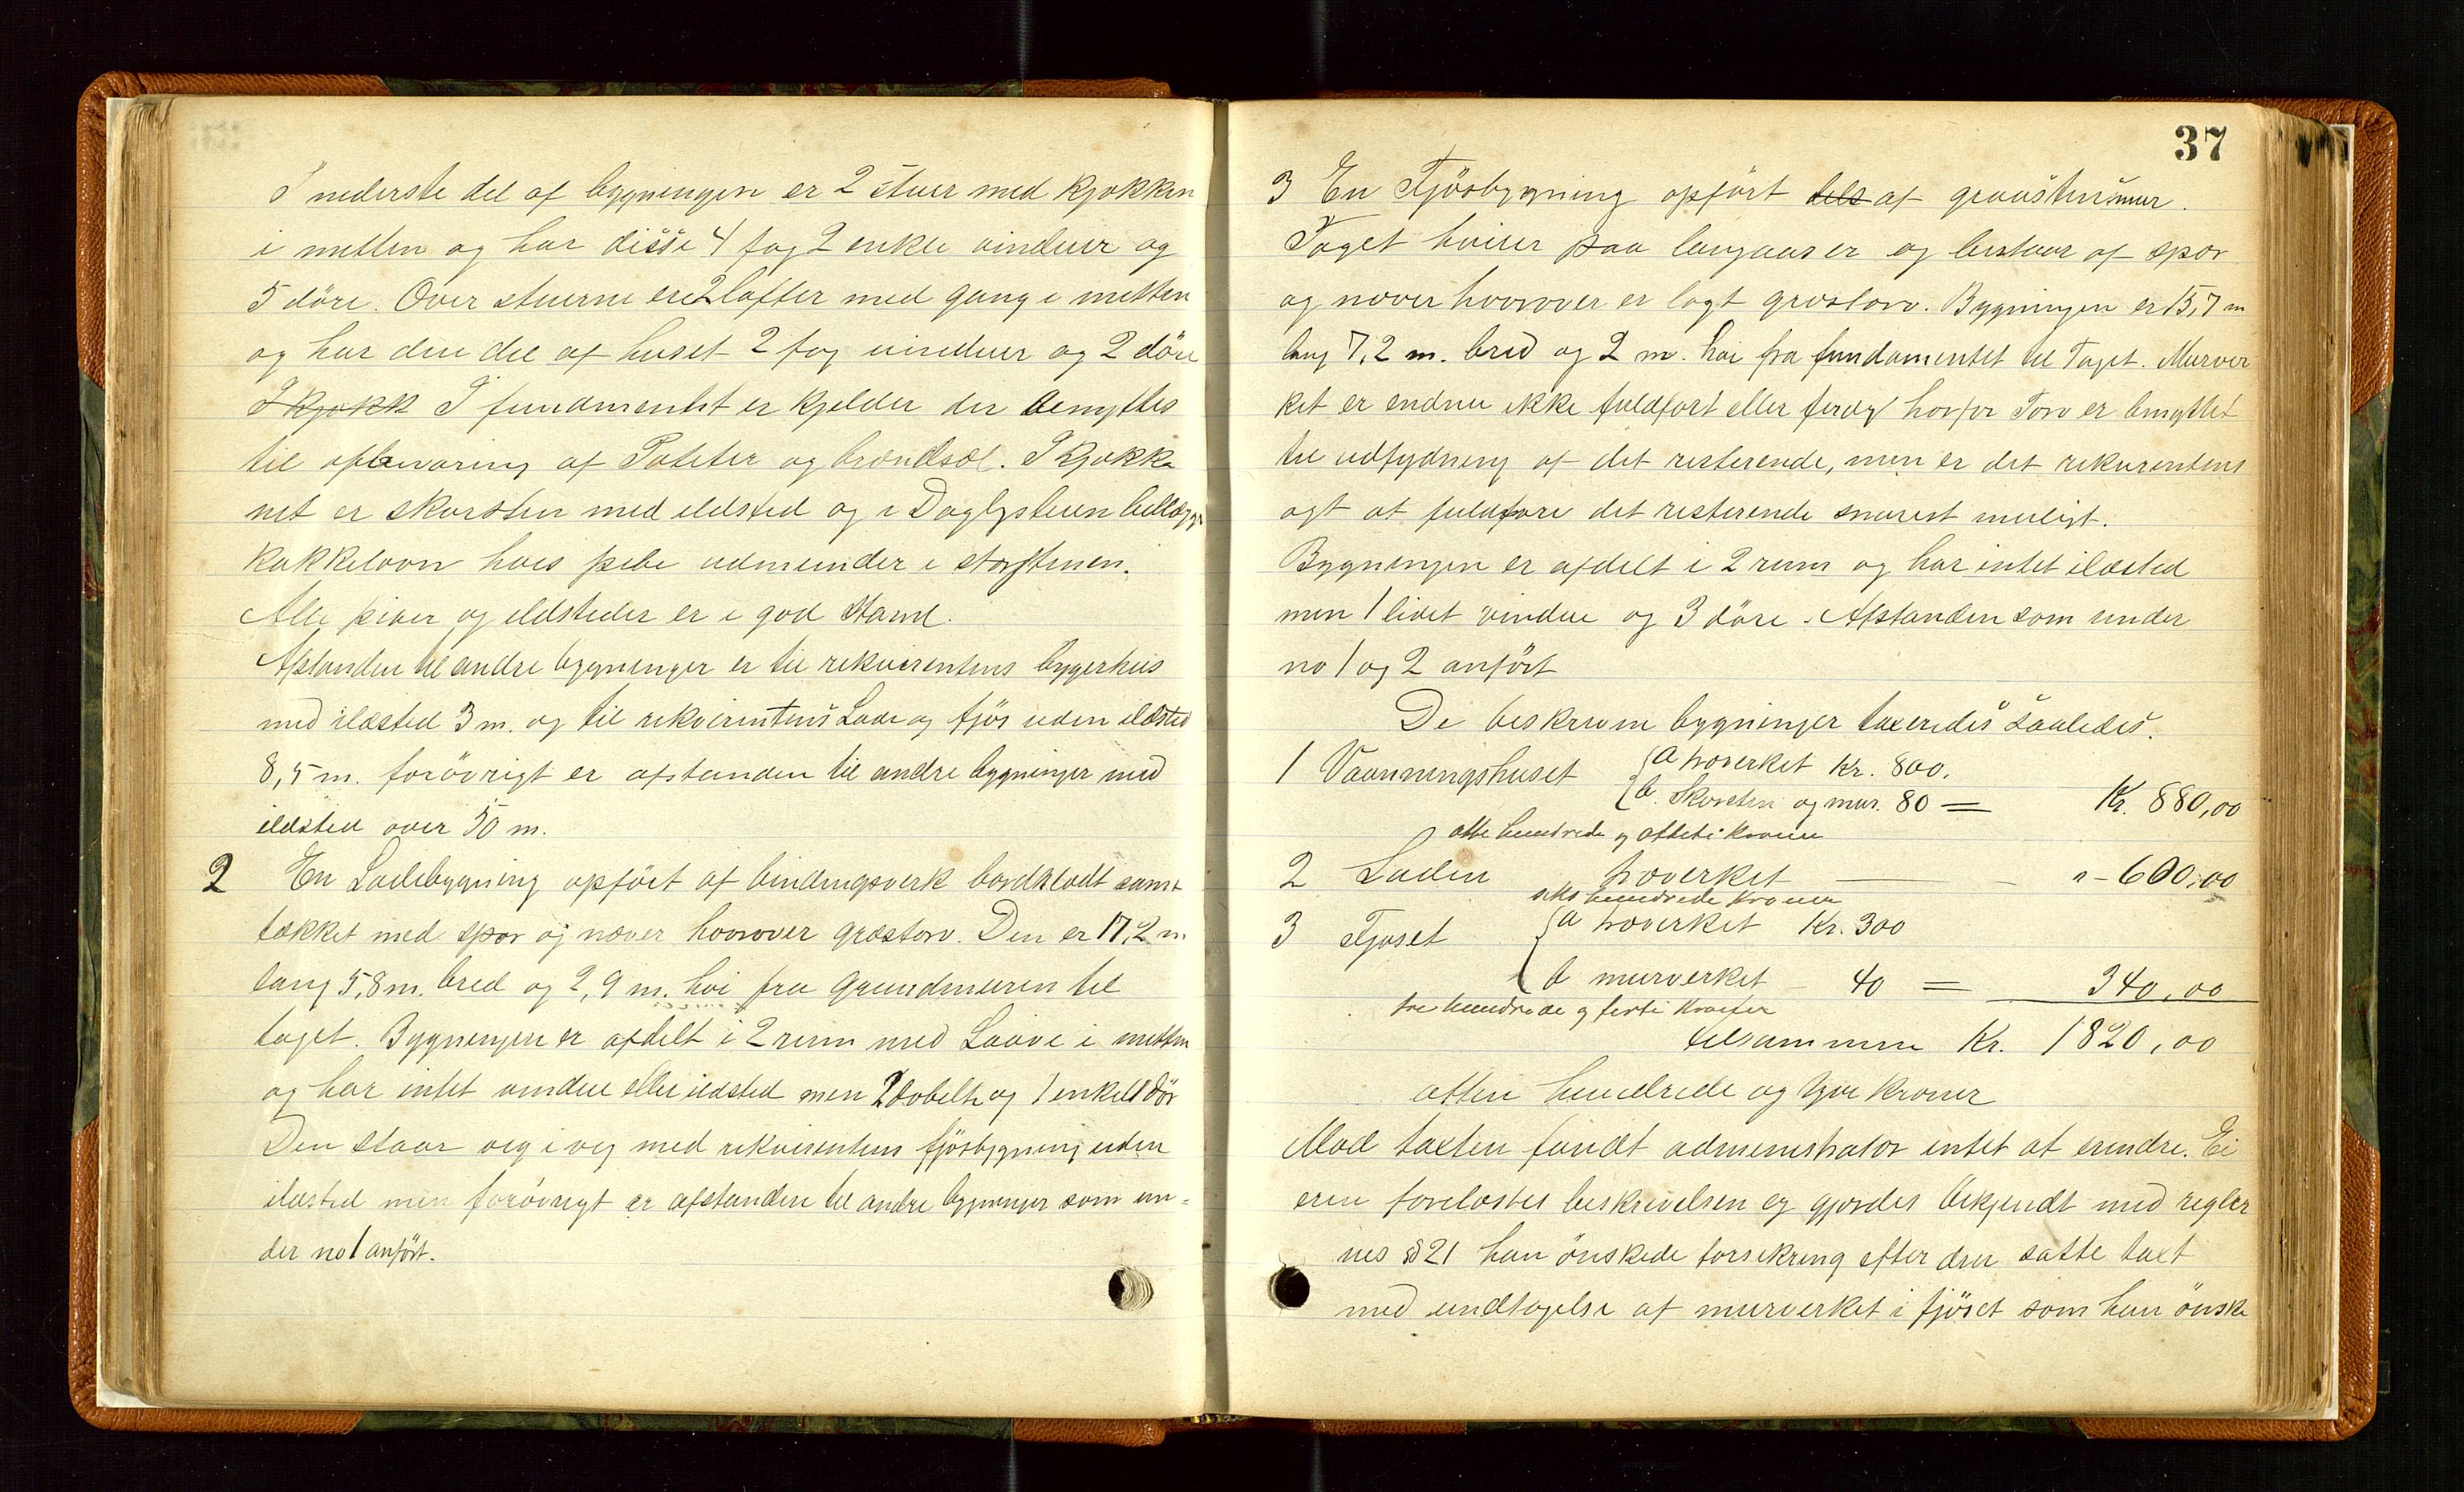 I nederste del af bygningen er 2 stuer med kjøkken
i mitten og har disse 4 fag 2 enkle vinduer og
5 döre. Over stuerne er 2 lofter med gang i mitten
og har den del af huset 2 fag vinduer og 2 döre
I kjøkk I fundmentet er kjelder der benyttes
til opbevaring af Poteter og brændsel. I kjøkke
net er skorsten med ildsted og i Daglystuen bellægs
kakkelovn hvis pibe udmunder i skorstenen.
Alle piber og ildsteder er i god Stand.
Afstanden til andre bygninger er til rekvirentens byggerhus
med ildsted 3 m. og til rekvirentens Lade og fjös uden ildsted
8,5 m. forövrigt er afstanden til andre bygninger med
ildsted over 50 m.
2 En Ladebygning opfört af bindingsverk bordklædt samt
tækket med spor og næver hvorover græstorv. Den er 17,2 m.
lang 5,8 m. bred og 2,9 m. høi fra Grundmuren til
taget. Bygningen er afdelt i 2 rum med Laave i mitten
og har intet vindue eller ildsted men 2 dobelte og 1 enkelt dör
Den staar veg i veg med rekvirentens fjösbygning uden
ildsted men forövrigt er afstanden til andre bygninger som un=
der no 1 anfört.
37
3 En Fjösbygning opfört dels af graastensmur.
Taget hviler paa langaaser og bestaar af spor
og næver hvorover er lagt græstorv. Bygningen er 15,7 m
lang 7,2 m. bred og 2 m. høi fra fundamentet til Taget. Murver
ket er endnu ikke fuldfört eller ferdig hvorfor Torv er benyttet
til udfydning af det resterende, men er det rekvirentens
agt at fuldføre det resterende snarest muligt.
Bygningen er afdelt i 2 rum og har intet ildsted
men 1 lidet vindue og 3 döre. Afstanden som under
no 1 og 2 anfört
De beskrevne bygninger taxeredes saaledes.
1 Vaanningshuset { a træverket Kr. 800.
b. Skorsten og mur. 80 = Kr. 880,00
otte hundrede og otteti kroner
2 Laden træverket — " - 600,00
seks hundrede kroner
3 Fjøset { a træverket Kr. 300
b murverket - 40 = 340,00
tre hundrede og firti kroner
tilsammen Kr. 1820,00
atten hundrede og tyve kroner
Mod taxten fandt administrator intet at erindre. Ei
eren forelæstes beskrivelsen og gjordes bekjendt med regler
nes § 21 han önskede forsikring efter den satte taxt
med undtagelse af murverket i fjöset som han önske